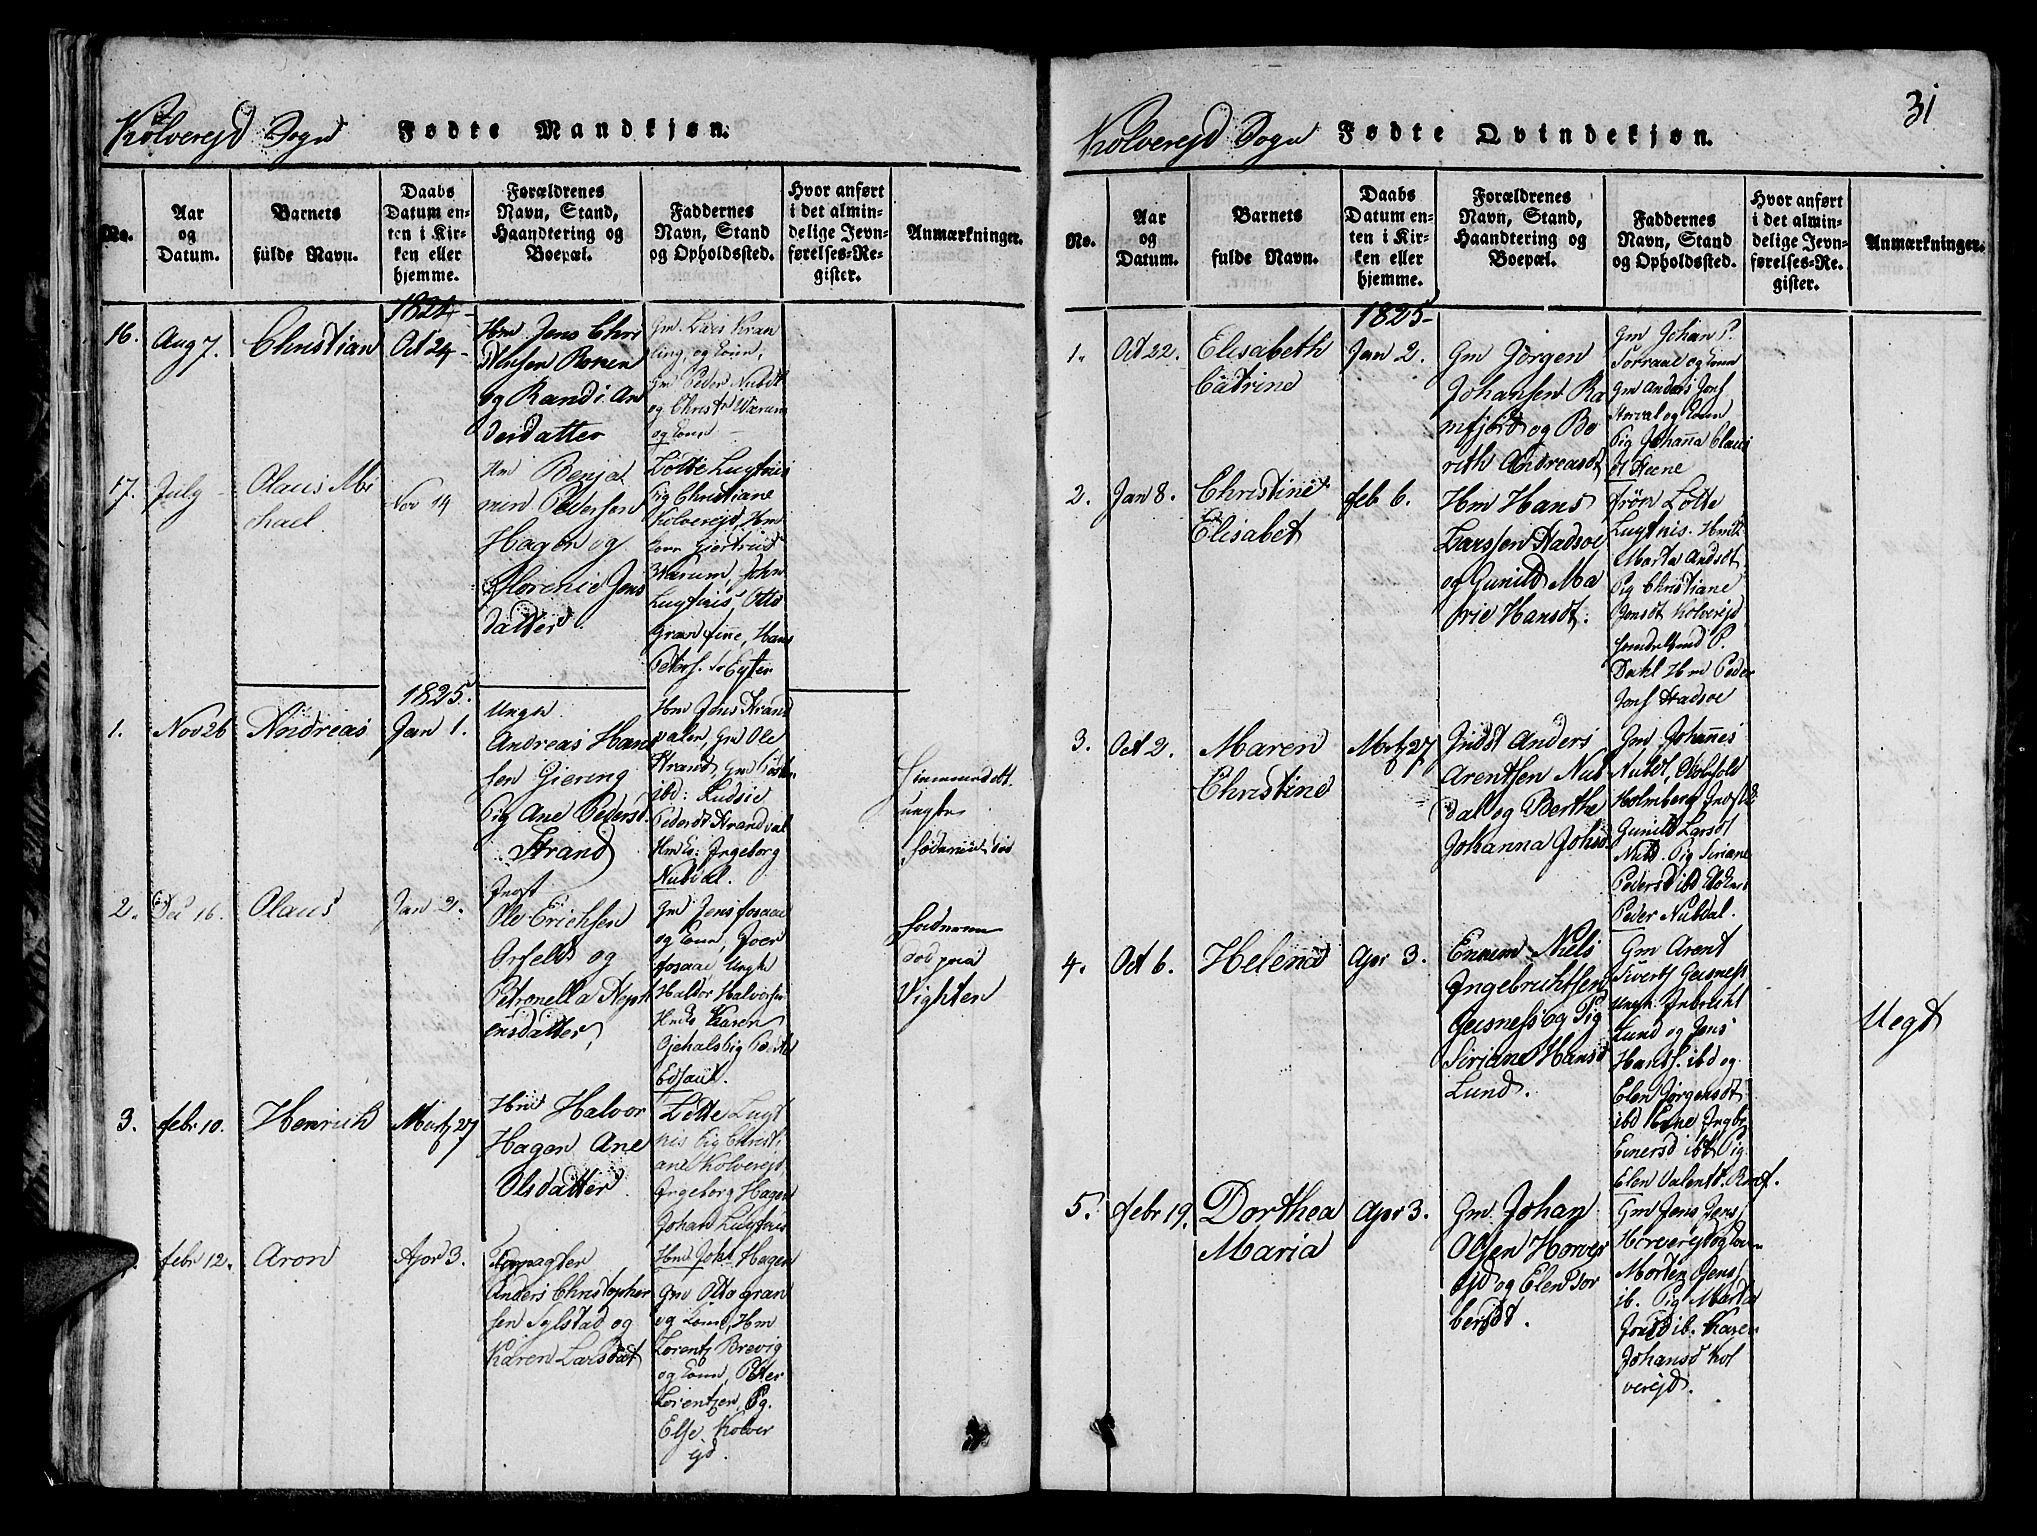 Kolverejd Sogn Fødte Mandkjøn.
No.
Aar
og
Datum.
Barnets
fulde Navn.
Daabs
Datum en-
ten i Kir-
ken eller
hjemme.
Forældrenes
Navn, Stand,
Haandtering og
Boepæl.
Faddernes
Navn, Stand
og Opholdssted.
Hvor anført
i det almin-
delige Jevn-
førelses-Re-
gister.
Anmærkninger.
1824
16. Aug 7. Christian Oct 24
Hm Jens Chri
stensen
og Randi An
dersdatter
Gm. Lars
og Kone,
Gm Peder Nubdt
og Christn Wærum
og Kone
17. July Olaus Mi
chael.
Nov 14
Hm Benja
min Pedersen
Hagen og
Florenie Jens
datter
Lotte Lugtnis
Pig Christiane
Kolverejd, Hm
Kone Giertrud
Wærum, John
Lugtnis, Otto
Gran fine, Hans
Peters.
1825.
1. Nov 26 Andreas Jan 1.
Ungk
Andreas Han
sen Giering
Pig Ane Pedersd.
Strand
Hm Jens Strand
valen, Gm Ole
Strand, Gm
ibd:
Pedersdt Strandval
Hmks: Ingeborg
Nubdal.
ungks
2. Dec 16. Olaus Jan 2.
Inst
Ole Erichsen
Orfeld og
Petronella Steph
ensdatter,
Gm Jens fosaae
og Kone, Joer
fosaae Ungk
Haldor Halvorsen
Hmks Karen
Pig
Faderen
Vighten
3. febr 10. Henrich Martz 27
Hm Halvor
Hagen Ane
Olsdatter
Lotte Lugt
nis Pig Christi
ane Kolverejd,
Ingeborg Hagen
Johan Lugtnis
febr 12. Aron Apr 3.
Forpagter
Anders Christopher
sen Sylstad og
Karen Larsdat
Hm Joh. Hagen
Gm Otto gran
og Kone, Hm
Lorentz Brevig
og Kone, Peter
Lorentzen, Pg.
Else Kolver
ejd.
31
Kolverejd Sogn Fødte Qvindekjøn.
No.
Aar
og
Datum.
Barnets
fulde Navn.
Daabs
Datum en-
ten i Kir-
ken eller
hjemme.
Forældrenes
Navn, Stand,
Haandtering og
Boepæl.
Faddernes
Navn, Stand
og Opholdssted.
Hvor anført
i det almin-
delige Jevn-
førelses-Re-
gister.
Anmærkninger.
1825
1. Oct 22. Elisabeth
Catrine
Jan 2.
Gm Jørgen
Johansen Ra
mfjord og Bo
reth Andreasdt
Gm Johan P.
og Kone
Gm Anders Jons
og Kone
Pig Johanna Claus
dt Steene
2. Jan 8. Christine
Elisabet
feb 6.
Hm Hans
Larssen Hadsøe
og Gunild Ma
rie Hansdt.
frøn Lotte
Lugtnis.
Marta Andsdt
Pig Christiane
Jonsdt Kolverejd
P.
Dahl Hm Peder
Jons Hadsøe
3. Oct 2. Maren
Christine
Martz 27
Indst Anders
Arentsen Nub
dal og Berthe
Johanna Johsd
Gm Johannes
Nubdt,
Holmberg Indst
Gunild Larsdt
Pig Siriane
Pedersd ibd
Peder Nubdal.
4. Oct 6. Helena Apr 3.
Enkem Niels
Ingebrichtsen
Geisness og Pig
Siriane Hansd
Lund.
Gm Arent
Siverts Geisness
Ungk: Inbricht
Lund og Jens
Hanss. ibd og
Elen Jørgensdt
ibd
Einersd ibd Pig
Elen Valentd. Ramf.
Uegt
5. febr 19. Dorthea
Maria
Apr 3.
Gm Johan
Olsen Horver
ejd og Elen Tor
bersdt.
Gm Jens Jens
Horverejd og Kone
Morten Jens
ib. Pig Marta
Jonsd ib. Karen
Johansd Kol
verejd.